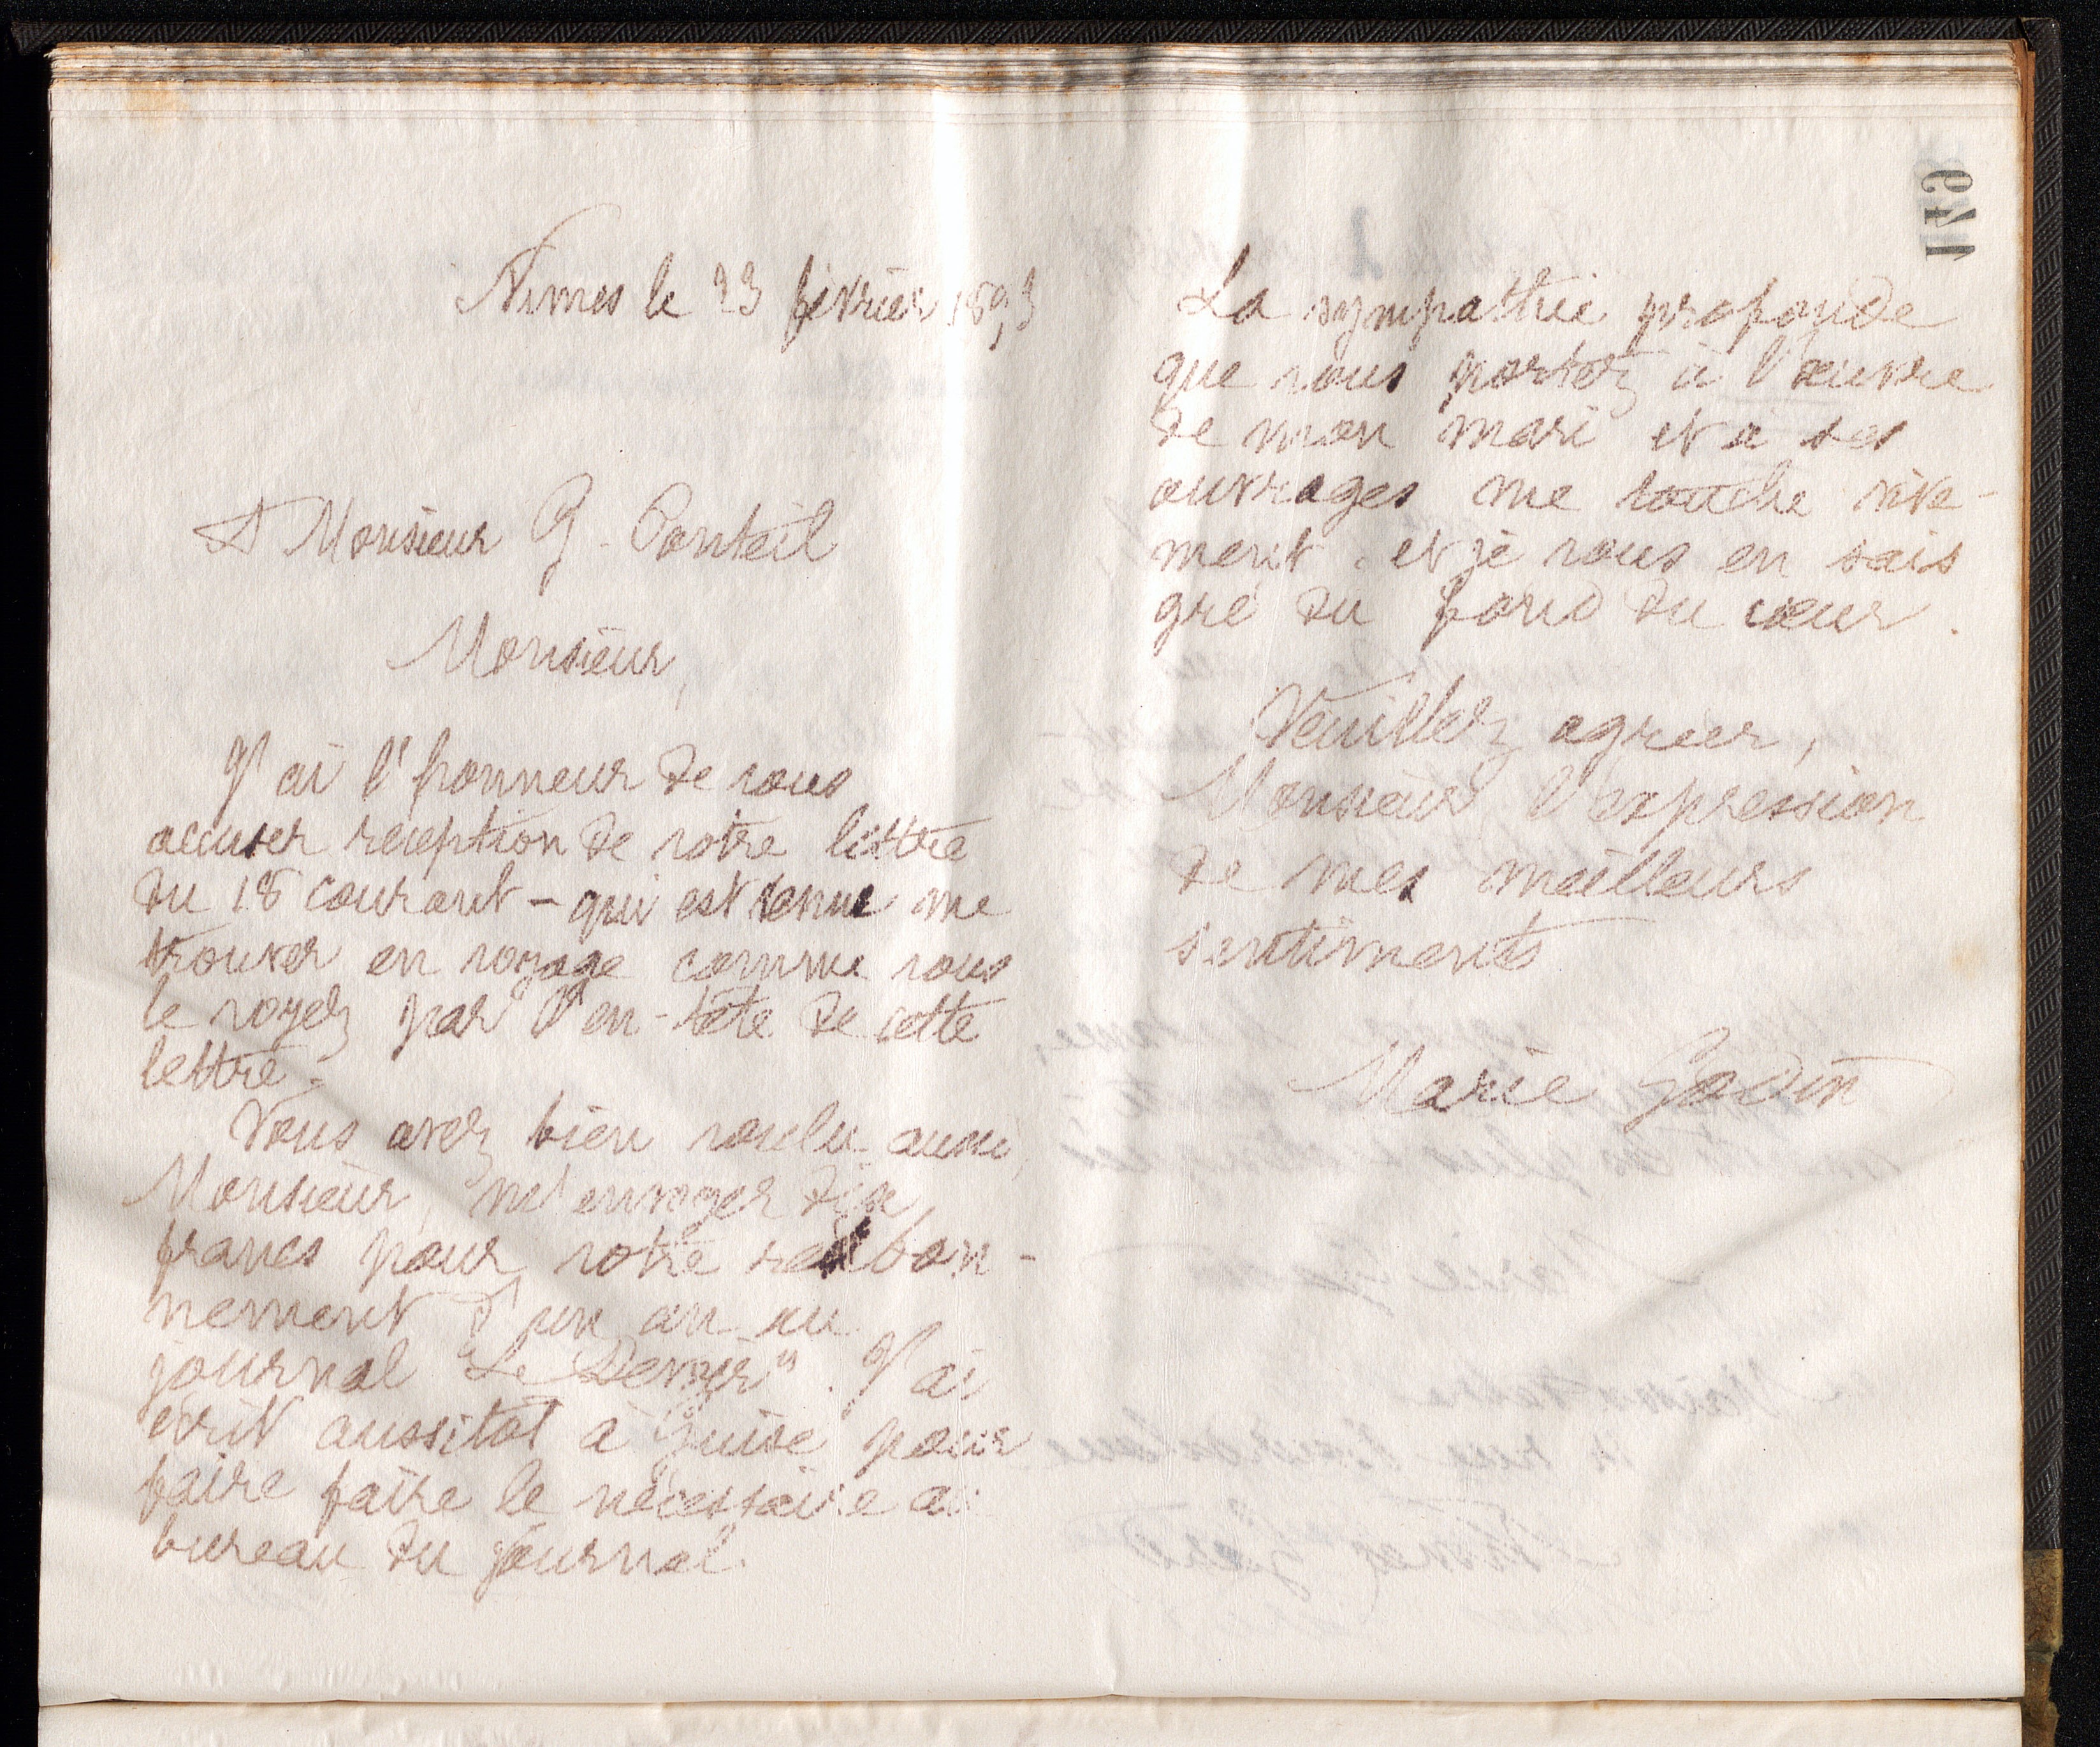 Nimes le 23 février 1893
A Monsieur G. Conteil
Monsieur,
J'ai l'honneur de vous
accuser réception de votre lettre
du 18 courant - qui est venue me
trouver en voyage comme vous
le voyez par l'en-tête de cette
lettre.
Vous avez bien voulu aussi,
Monsieur, m'envoyer dix
francs pour votre réabon-
nement d'un an au
journal "Le Devoir". J'ai
écrit aussitôt à Guise pour
faire faire le nécessaire au
bureau du journal.
La sympathie profonde
que vous portez à l'œuvre
de mon mari et à ses
ouvrages me touche vive-
ment et je vous en sais
gré du fond du cœur.
Veuillez agréer,
Monsieur l'expression
de mes meilleurs
sentiments
Marie Godin
179